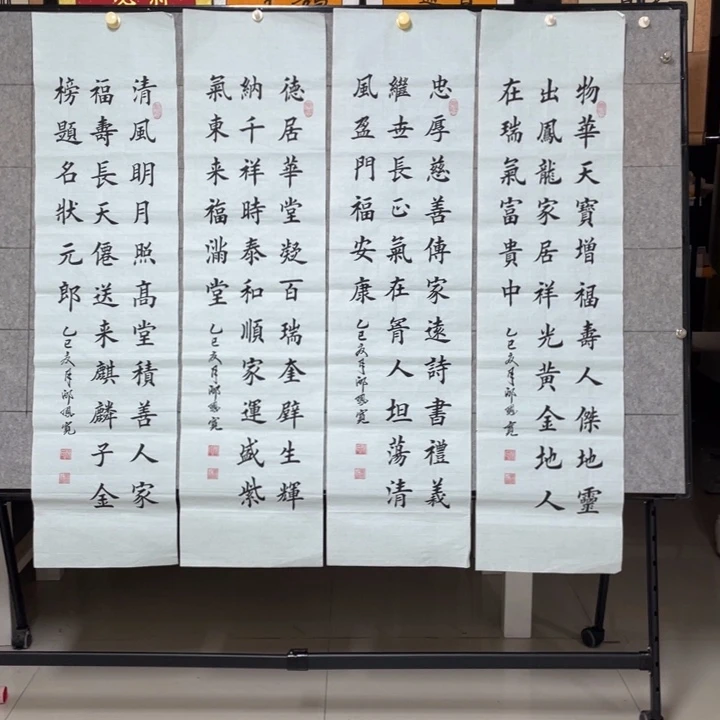 物華天寶增福壽人傑地靈
出鳳龍家居祥光黃金地人
在瑞氣富貴中
乙巳
忠厚慈善傳家遠詩書禮義
繼世長正氣在胷人坦蕩清
風盈門福安康
乙巳
德居華堂凝百瑞奎壁生輝
納千祥時泰和順家運盛紫
氣東来福滿堂
乙巳
清風明月照高堂積善人家
福壽長天僊送来麒麟子金
榜題名狀元郎
乙巳